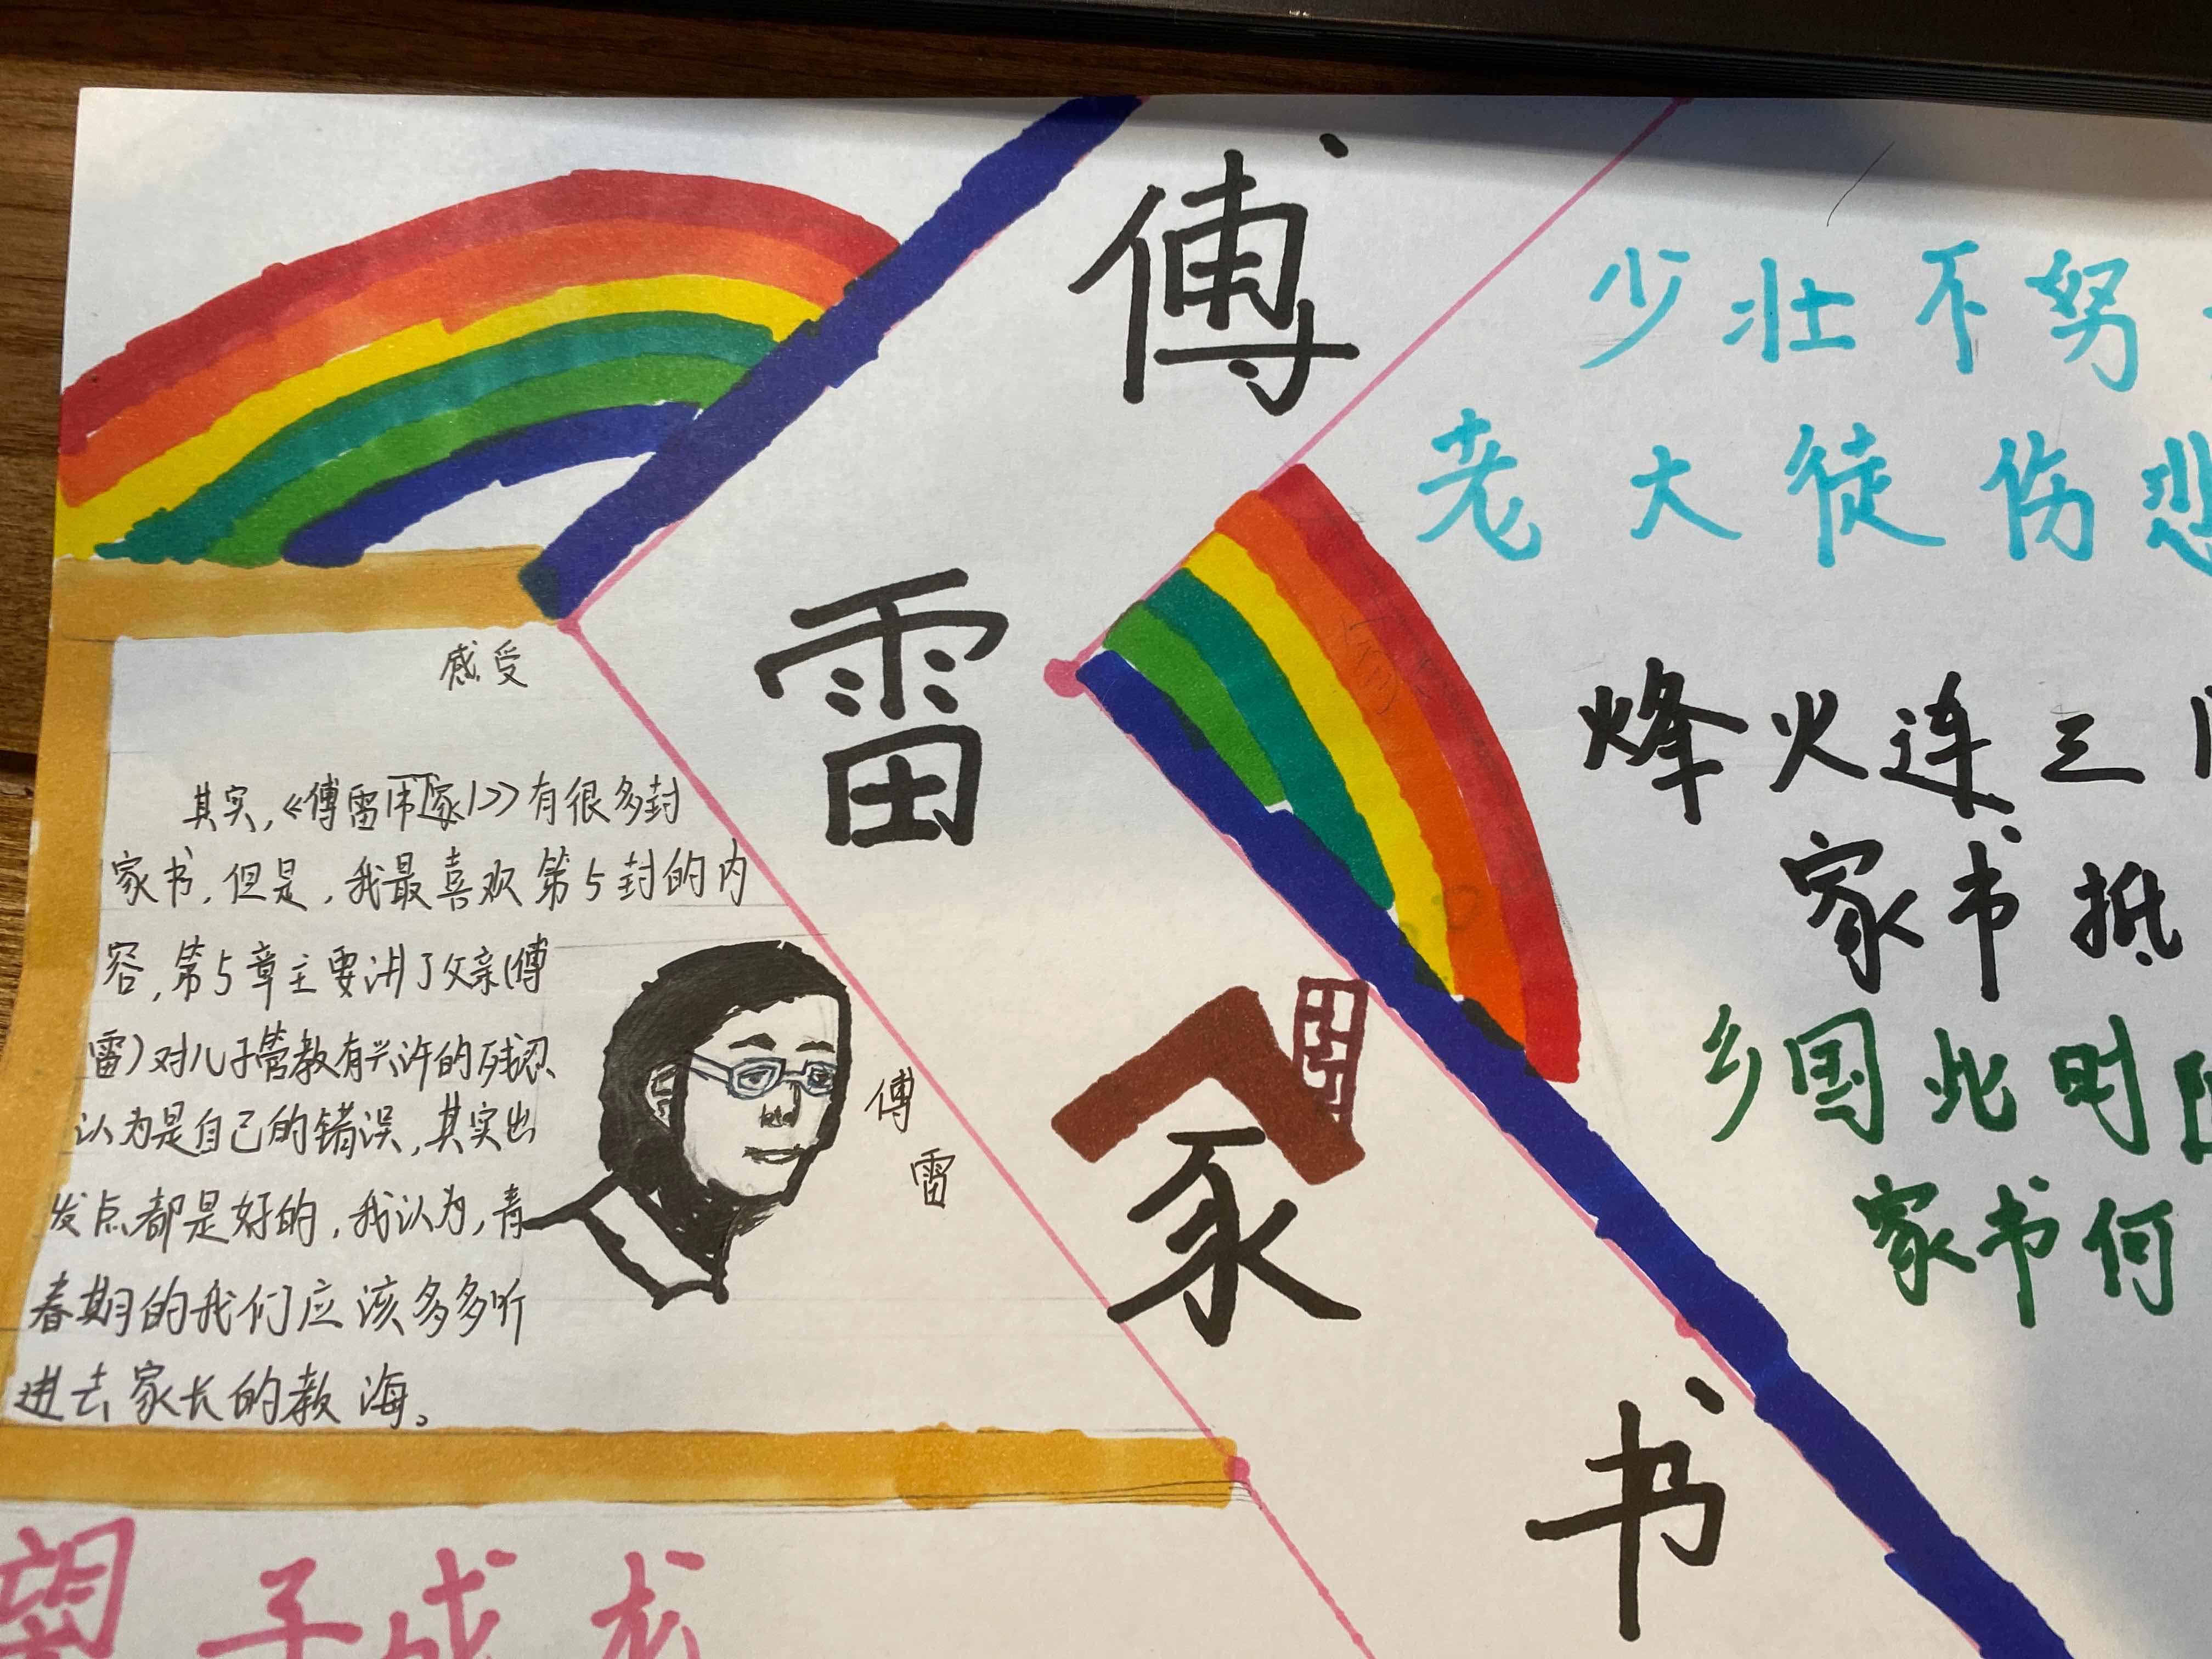 傅
雷
家
书
少壮不努
老大徒伤悲
烽火连三
家书抵
乡国此时
家书何
感受
其实,《傅雷家》有很多封
家书,但是,我最喜欢第5封的内
容,第5章主要讲了父亲(傅
雷)对儿子管教有兴许的残忍、
认为是自己的错误,其实出
发点都是好的,我认为,青
春期的我们应该多多听
进去家长的教海。
傅
雷
望子成龙